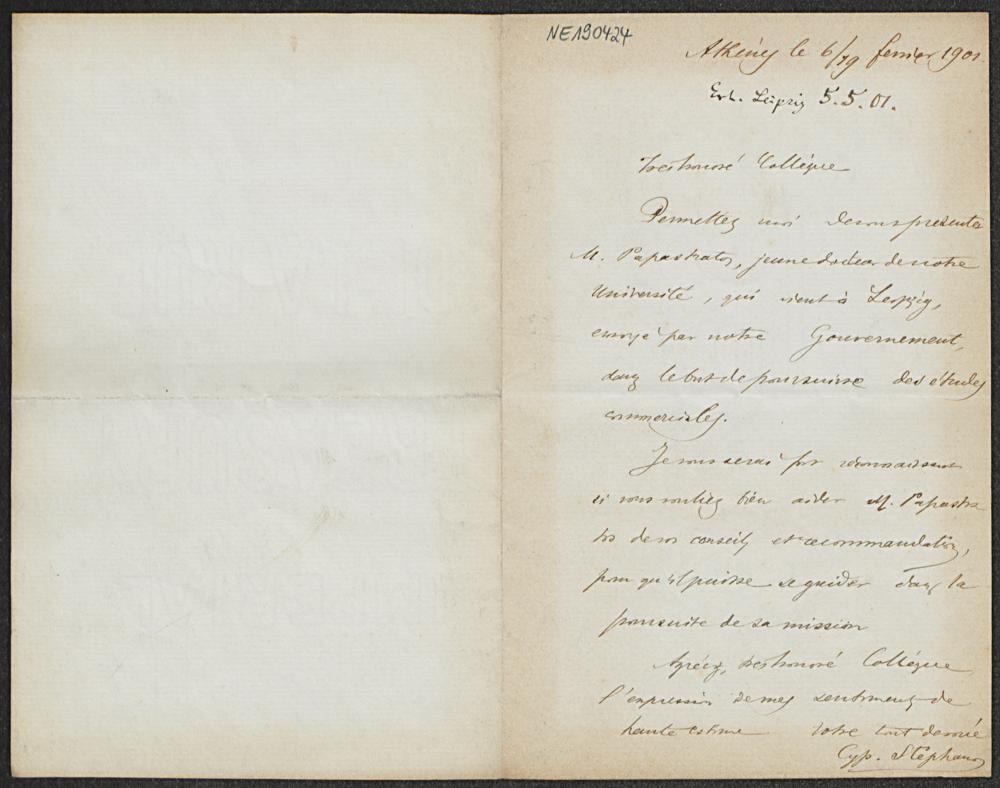 NE190424
Athènes le 6/19 fevrier 1901
Erh. Leipzig 5.5.01.
Très honoré Collègue
Permettez moi de vous présenter
M. Papastratos, jeune docteur de notre
Université, qui vient à Leipzig,
envoyé par notre Gouvernement,
dans le but de poursuivre des études
commerciales.
Je vous serai fort reconnaissant
si vous vouliez bien aider M. Papastra
tos de vos conseils et recommandations,
pour qu'il puisse se guider dans la
poursuite de sa mission
Agréez, très honoré Collègue
l'expression de mes sentiments de
haute estime Votre tout dévoué
Cyp. Stéphanos